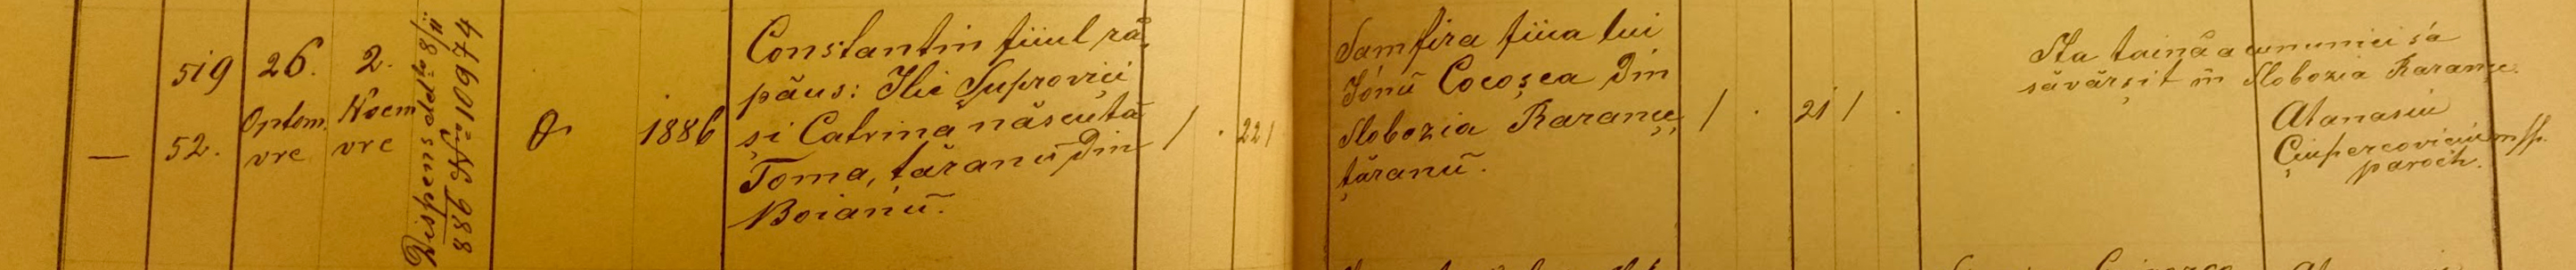 —
519
52.
26.
Optom.
vre
2.
Noem
vre
Dispens ddto 8/11
886 Nro 10974
1886
Constantin fiiul ră,
păus: Ilie Șuprovici
și Catrina născută
Toma, țăranŭ Din
Boianŭ.
1
22 1
Samfira fiica lui
Iónŭ Cocoșea Din
Slobozia Rarance
țăranŭ.
1
21 1
Sta taină a cununiei s'a
săvârșit în Slobozia Rarance.
Atanasiu
Ciupercoviciu m/p.
paroch.